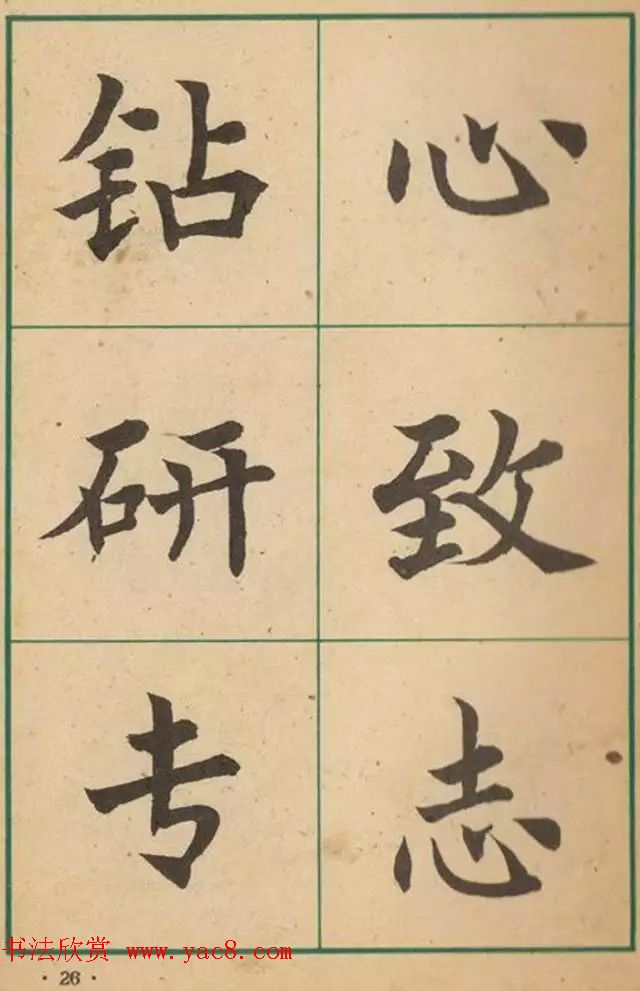 心致志
钻研专
书法欣赏 www.yac8.com
·26·